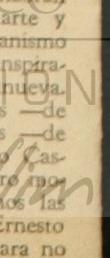 arte y
anismo
nspira-
nueva-
s —de
s —de
o Cas-
ro mo-
nos las
Ernesto
ara no